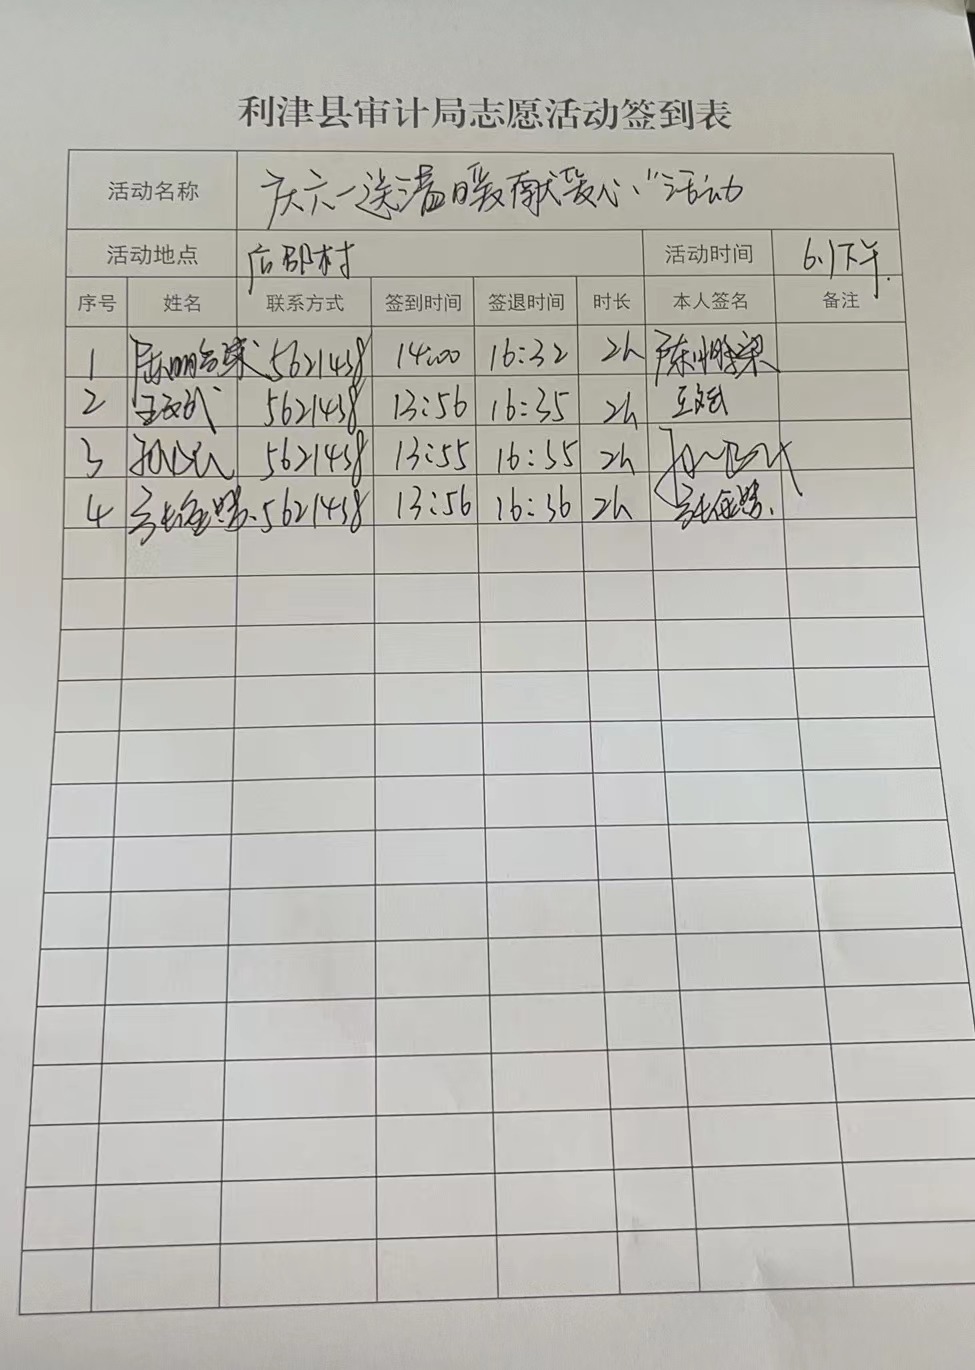 利津县审计局志愿活动签到表
活动名称 庆六一送温暖献爱心"活动
活动地点 后郭村 活动时间 6.1下午.
序号 姓名 联系方式 签到时间 签退时间 时长 本人签名 备注
1 5621438 14:00 16:32 2h
2 王文武 5621438 13:56 16:35 2h 王文武
3 5621438 13:55 16:35 2h
4 5621438 13:56 16:36 2h